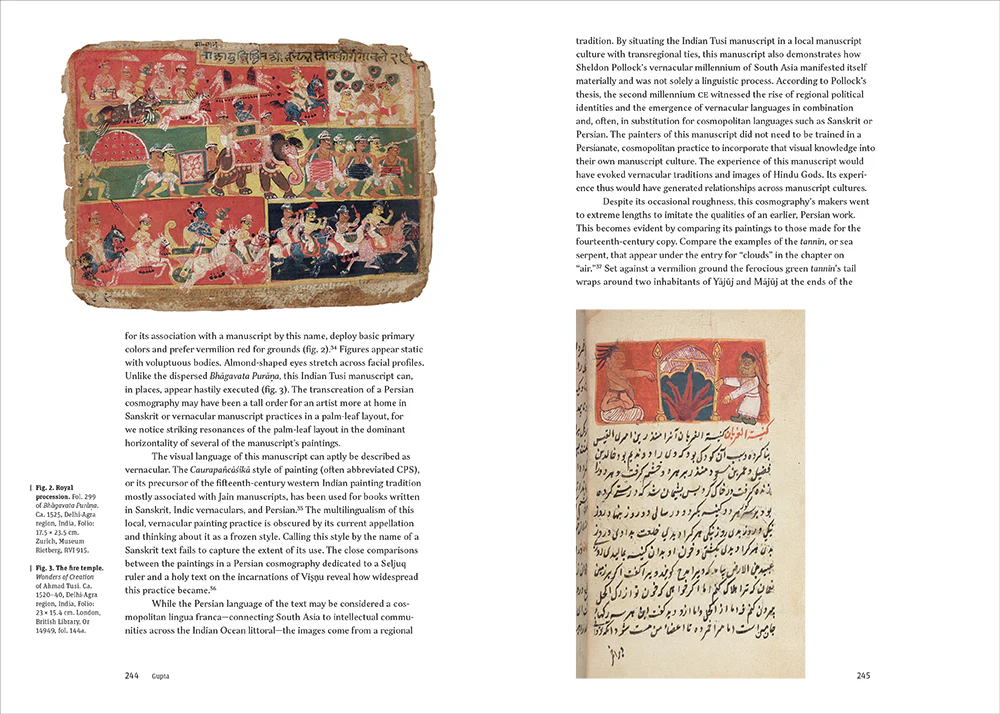 for its association with a manuscript by this name, deploy basic primary
colors and prefer vermilion red for grounds (fig. 2).³⁴ Figures appear static
with voluptuous bodies. Almond-shaped eyes stretch across facial profiles.
Unlike the dispersed Bhāgavata Purāṇa, this Indian Tusi manuscript can,
in places, appear hastily executed (fig. 3). The transcreation of a Persian
cosmography may have been a tall order for an artist more at home in
Sanskrit or vernacular manuscript practices in a palm-leaf layout, for
we notice striking resonances of the palm-leaf layout in the dominant
horizontality of several of the manuscript's paintings.
The visual language of this manuscript can aptly be described as
vernacular. The Caurapañcāśikā style of painting (often abbreviated CPS),
or its precursor of the fifteenth-century western Indian painting tradition
mostly associated with Jain manuscripts, has been used for books written
in Sanskrit, Indic vernaculars, and Persian.³⁵ The multilingualism of this
local, vernacular painting practice is obscured by its current appellation
and thinking about it as a frozen style. Calling this style by the name of a
Sanskrit text fails to capture the extent of its use. The close comparisons
between the paintings in a Persian cosmography dedicated to a Seljuq
ruler and a holy text on the incarnations of Viṣṇu reveal how widespread
this practice became.³⁶
While the Persian language of the text may be considered a cos-
mopolitan lingua franca—connecting South Asia to intellectual commu-
nities across the Indian Ocean littoral—the images come from a regional
| Fig. 2. Royal
procession. Fol. 299
of Bhāgavata Purāṇa.
Ca. 1525, Delhi-Agra
region, India, Folio:
17.5 × 23.5 cm.
Zurich, Museum
Rietberg, RVI 915.
| Fig. 3. The fire temple.
Wonders of Creation
of Ahmad Tusi. Ca.
1520–40, Delhi-Agra
region, India, Folio:
23 × 15.4 cm. London,
British Library, Or
14949, fol. 144a.
244 Gupta
tradition. By situating the Indian Tusi manuscript in a local manuscript
culture with transregional ties, this manuscript also demonstrates how
Sheldon Pollock's vernacular millennium of South Asia manifested itself
materially and was not solely a linguistic process. According to Pollock's
thesis, the second millennium CE witnessed the rise of regional political
identities and the emergence of vernacular languages in combination
and, often, in substitution for cosmopolitan languages such as Sanskrit or
Persian. The painters of this manuscript did not need to be trained in a
Persianate, cosmopolitan practice to incorporate that visual knowledge into
their own manuscript culture. The experience of this manuscript would
have evoked vernacular traditions and images of Hindu Gods. Its experi-
ence thus would have generated relationships across manuscript cultures.
Despite its occasional roughness, this cosmography's makers went
to extreme lengths to imitate the qualities of an earlier, Persian work.
This becomes evident by comparing its paintings to those made for the
fourteenth-century copy. Compare the examples of the tannīn, or sea
serpent, that appear under the entry for "clouds" in the chapter on
"air."³⁷ Set against a vermilion ground the ferocious green tannīn's tail
wraps around two inhabitants of Yājūj and Mājūj at the ends of the
كنيسة الغربان كنيسة الغربان آنرا منذر بن امرى القيس
245